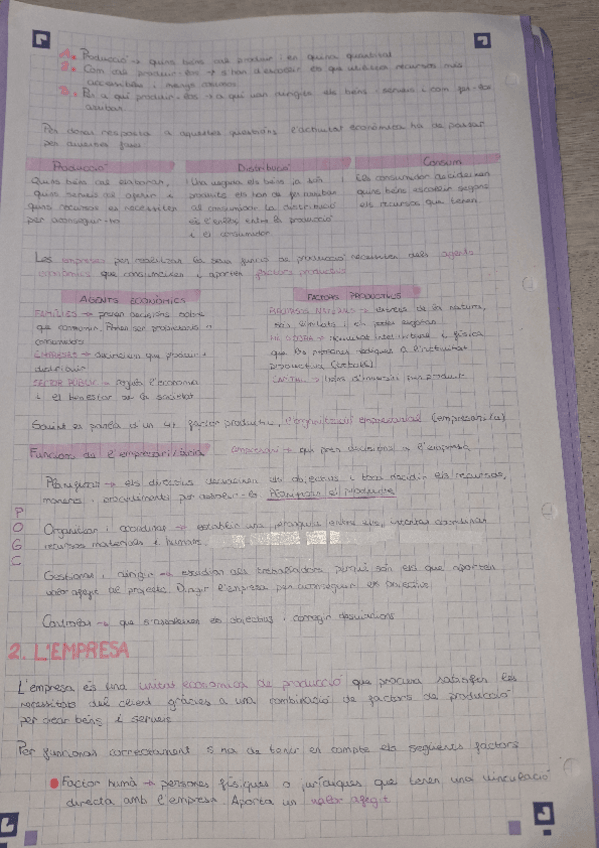 1. Producció → quins béns cal produir i en quina quantitat
2. Com cal produir-los → s'han d'escollir els que utilitzen recursos més
accessibles i menys costosos
3. Per a qui produir-los → a qui van dirigits els béns i serveis i com fer-los
arribar.
Per donar resposta a aquestes qüestions l'activitat econòmica ha de passar
per aquestes fases
Producció
Quins béns cal elaborar,
quins serveis cal oferir i
quins recursos es necessiten
per aconseguir-ho
Distribució
Una vegada els béns ja són
produïts els han de fer arribar
al consumidor. La distribució
és l'enllaç entre la producció
i el consumidor.
Consum
Els consumidors decideixen
quins béns escollir segons
els recursos que tenen.
Les empreses per realitzar la seva funció de producció necessiten dels agents
econòmics que consumeixen i aporten factors productius
AGENTS ECONÒMICS
FAMÍLIES → prenen decisions sobre
que consumir. Poden ser propietaris o
arrendats
EMPRESES → decideixen que produir i
distribuir
SECTOR PÚBLIC → Regula l'economia
i el benestar de la societat
FACTORS PRODUCTIUS
RECURSOS NATURALS → extrets de la natura,
MÀ D'OBRA → intel·lectual i física
que les persones a l'activitat
productiva (treball)
CAPITAL →
Sovint es parla d'un 4t factor productiu, l'organització empresarial (empresari/a)
Funcions de l'empresari/ària → que pren decisions a l'empresa
Planificar → els directius decideixen els objectius i toca decidir els recursos,
maneres i procediments per assolir-los. Planificar el producte
P
O
G
C
Organitzar i coordinar → establir una jerarquia entre ells, coordinar
recursos materials i humans.
Gestionar i dirigir → als treballadors, perquè són els que aporten
valor afegit al projecte. Dirigir l'empresa per aconseguir els objectius.
Controlar → que s'assoleixen els objectius i corregir desviacions
2. L'EMPRESA
L'empresa és una unitat econòmica de producció que procura satisfer les
necessitats del client gràcies a una combinació de factors de producció
per crear béns i serveis
Per funcionar correctament s'ha de tenir en compte els següents factors
• Factor humà → persones físiques o jurídiques que tenen una vinculació
directa amb l'empresa. Aporta un valor afegit